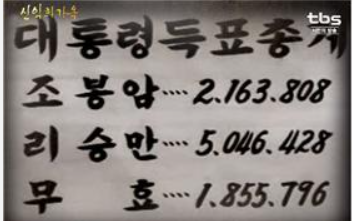 신임하가욕
tbs
대통령득표총계
조봉암····2.163.808
리승만····5.046.428
무 효····1.855.796